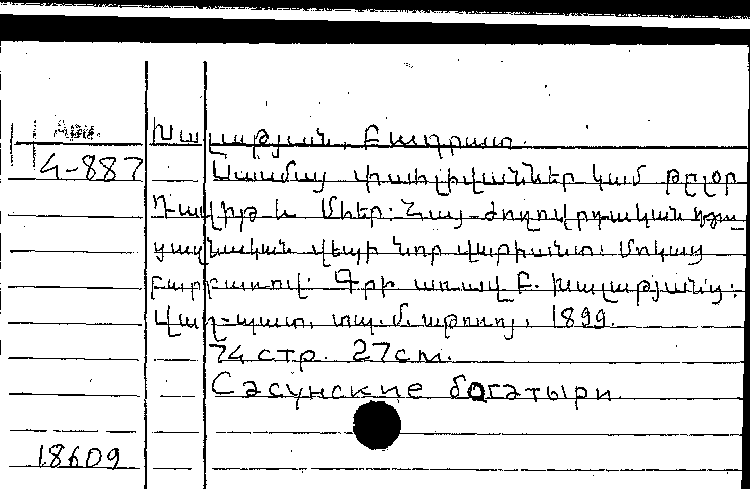 Арм.
Խալաթյան, Բագրատ.
Կ-887
Սասմայ փահլիվաններ կամ թըլօր
Դավիթ և Մհեր: Հայ ժողովրդական դյու
ցազնական վեպի նոր վարիանտ: Մոկաց
բարբառով: Գրի առավ Բ. Խալաթյանց:
Վաղ-պատ, տպ. Մ. աթոռոյ, 1899.
74 стр. 27 см.
Сасунские богатыри
18609